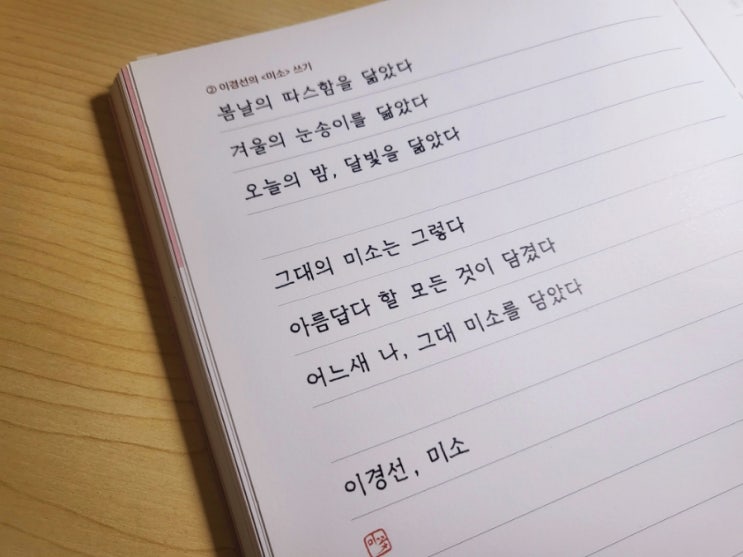 ② 이경선의 <미소> 쓰기
봄날의 따스함을 닮았다
겨울의 눈송이를 닮았다
오늘의 밤, 달빛을 닮았다
그대의 미소는 그렇다
아름답다 할 모든 것이 담겼다
어느새 나, 그대 미소를 담았다
이경선, 미소